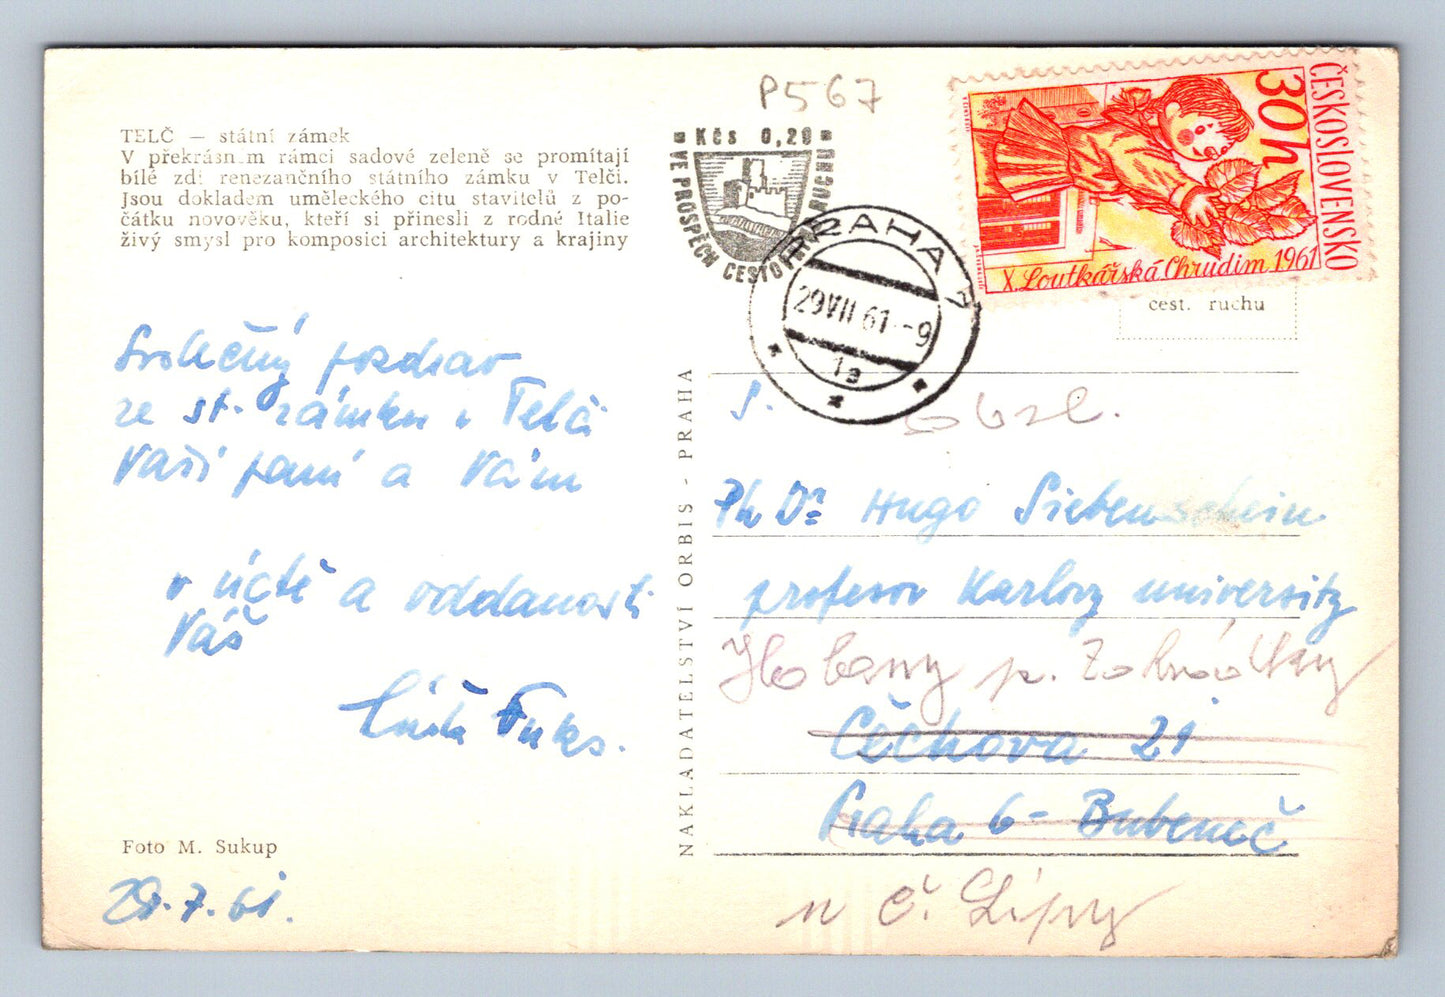 TELČ — státní zámek
V překrásném rámci sadové zeleně se promítají
bílé zdi renezančního státního zámku v Telči.
Jsou dokladem uměleckého citu stavitelů z po-
čátku novověku, kteří si přinesli z rodné Italie
živý smysl pro komposici architektury a krajiny
Srdečný pozdrav
ze st. zámku v Telči
Vaší paní a Vám
v úctě a oddanosti
Váš
Fuks.
Foto M. Sukup
29.7.61.
NAKLADATELSTVÍ ORBIS - PRAHA
P567
Kčs 0,20
VE PROSPĚCH CESTOVNÍHO RUCHU
PRAHA 7
29 VII 61 -9
1a
ČESKOSLOVENSKO
30h
X. Loutkářská Chrudim 1961
cest. ruchu
Ph Dr Hugo Siebenschein
profesor Karlovy university
Čechova 21
Praha 6 - Bubeneč
u Č. Lípy